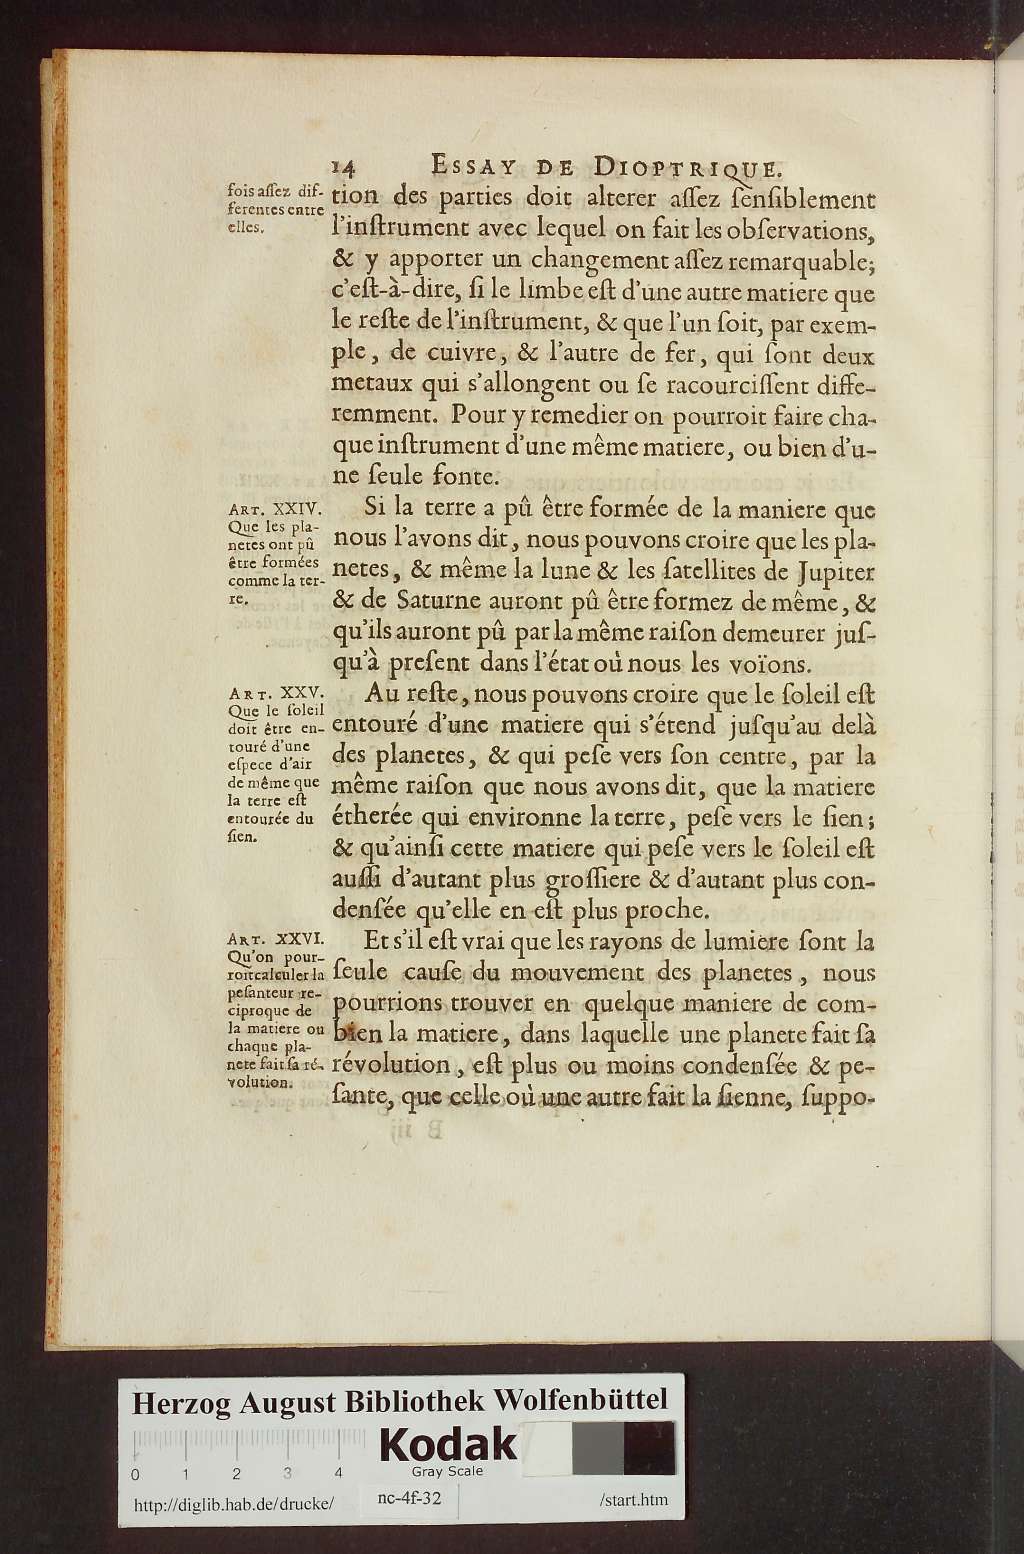 14 ESSAY DE DIOPTRIQUE.
fois aſſez dif-
ferentes entre
elles.
tion des parties doit alterer aſſez ſenſiblement
l'inſtrument avec lequel on fait les obſervations,
& y apporter un changement aſſez remarquable;
c'eſt-à-dire, ſi le limbe eſt d'une autre matiere que
le reſte de l'inſtrument, & que l'un ſoit, par exem-
ple, de cuivre, & l'autre de fer, qui ſont deux
metaux qui s'allongent ou ſe racourciſſent diffe-
remment. Pour y remedier on pourroit faire cha-
que inſtrument d'une même matiere, ou bien d'u-
ne ſeule fonte.
ART. XXIV.
Que les pla-
netes ont pû
être formées
comme la ter-
re.
Si la terre a pû être formée de la maniere que
nous l'avons dit, nous pouvons croire que les pla-
netes, & même la lune & les ſatellites de Jupiter
& de Saturne auront pû être formez de même, &
qu'ils auront pû par la même raiſon demeurer juſ-
qu'à preſent dans l'état où nous les voïons.
ART. XXV.
Que le ſoleil
doit être en-
touré d'une
eſpece d'air
de même que
la terre eſt
entourée du
ſien.
Au reſte, nous pouvons croire que le ſoleil eſt
entouré d'une matiere qui s'étend juſqu'au delà
des planetes, & qui peſe vers ſon centre, par la
même raiſon que nous avons dit, que la matiere
étherée qui environne la terre, peſe vers le ſien;
& qu'ainſi cette matiere qui peſe vers le ſoleil eſt
auſſi d'autant plus groſſiere & d'autant plus con-
denſée qu'elle en eſt plus proche.
ART. XXVI.
Qu'on pour-
roit calculer la
peſanteur re-
ciproque de
la matiere ou
chaque pla-
nete fait ſa ré-
volution.
Et s'il eſt vrai que les rayons de lumiere ſont la
ſeule cauſe du mouvement des planetes, nous
pourrions trouver en quelque maniere de com-
bien la matiere, dans laquelle une planete fait ſa
révolution, eſt plus ou moins condenſée & pe-
ſante, que celle où une autre fait la ſienne, ſuppo-
Herzog August Bibliothek Wolfenbüttel
Kodak
Gray Scale
0 1 2 3 4
http://diglib.hab.de/drucke/ nc-4f-32 /start.htm